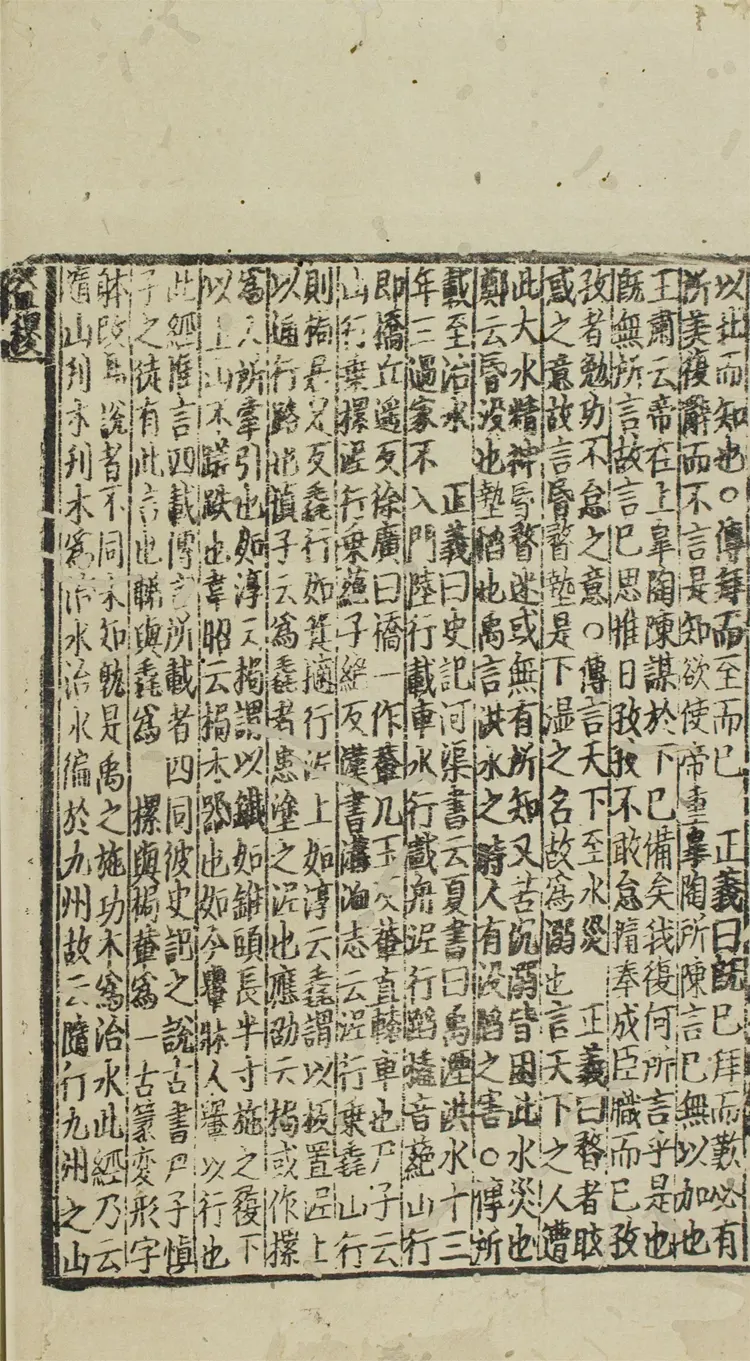 以此而知也○傳拜而至而已　正義曰旣已拜而歎必有
所美復辭而不言是知欲使帝重皋陶所陳言已無以加也
王肅云帝在上皋陶陳謀於下已備矣我復何所言乎是也
旣無所言故言已思惟日孜孜不敢怠惰奉成臣職而已孜
孜者勉功不怠之意○傳言天下至水災　正義曰瞀者眩
惑之意故言昏瞀墊是下濕之名故爲溺也言天下之人遭
此大水精神昏瞀迷或無有所知又苦沉溺皆困此水災也
鄭云昏没也墊陷也禹言洪水之時人有没陷之害○傳所
載至治水　正義曰史記河渠書云夏書曰禹湮洪水十三
年三過家不入門陸行載車水行載舟泥行蹈毳音蕝山行
即橋丘遥反徐廣曰橋一作輂几玉反輂直轅車也尸子云
山行乗樏泥行乗蕝子絕反漢書溝洫志云泥行乗毳山行
則梮居足反毳行如箕擿行泥上如淳云毳謂以板置泥上
以通行路也慎子云爲毳者患塗之泥也應劭云梮或作樏
爲人所牽引也如淳云梮謂以鐵如錐頭長半寸施之履下
以上山不蹉跌也韋昭云梮木器也如今轝牀人轝以行也
此經惟言四載傳言所載者四同彼史記之說古書尸子慎
子之徒有此言也輴與毳爲　樏與梮輂爲一古篆變形字
體改易說者不同未知孰是禹之施功本爲治水此經乃云
隨山刋木刋木爲治水治水徧於九州故云隨行九州之山
益稷